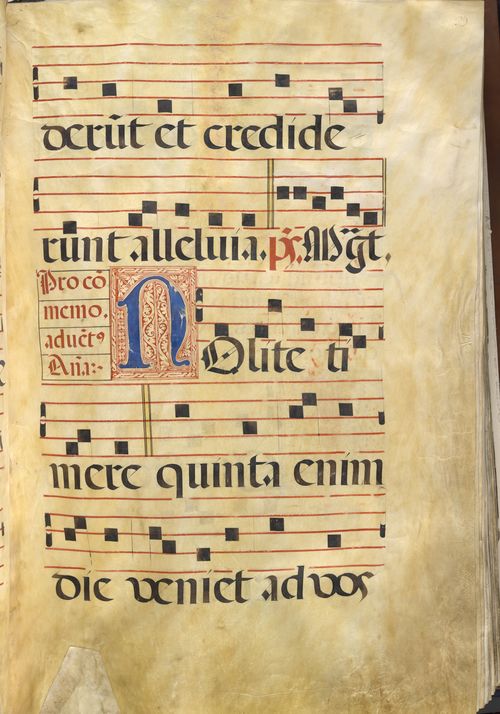 derũt et credide
runt alleluia. ps. Mḡt.
Pro cō
memo.
aduēt⁹
Aña:-
NOlite ti
mere quinta enim
die veniet ad vos